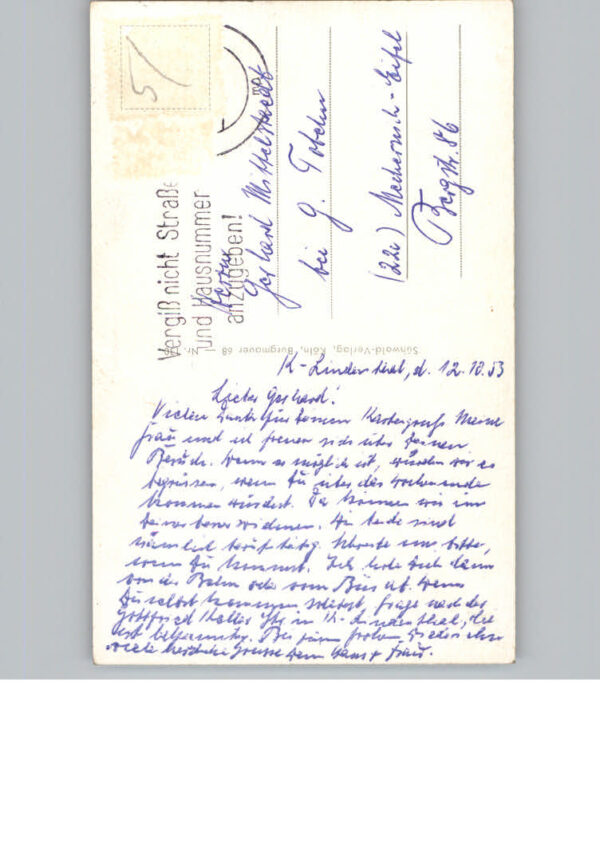 5/
Vergiß nicht Straße
und Hausnummer
anzugeben!
Herrn
Gerhard Mittelstaedt
bei G.
(22c) Mechernich-Eifel
Bergstr. 86
Sünwald-Verlag, Köln, Burgmauer 68 - Nr.
K-Lindenthal, d. 12.10.53
Lieber Gerhard!
Vielen Dank für Deinen Kartengruß. Meine
Frau und ich freuen sich über Deinen
Besuch. Wenn es möglich ist, würden wir es
begrüssen, wenn Du über das Wochenende
kommen würdest. Da können wir uns
Deiner besser widmen. Wir beide sind
nämlich berufstätig. Schreibe uns bitte,
wann Du kommst. Ich hole Dich dann
von der Bahn oder vom Bus ab. Wenn
Du selbst kommen solltest, frage nach der
Gottfried Keller Str in K-Lindenthal, die
ist Bei einem frohen Wiedersehen
viele herzliche Grüsse Dein Hans u Frau.